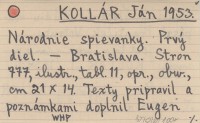 KOLLÁR Ján 1953.
Národnie spievanky. Prvý
diel. — Bratislava. Stron
777, ilustr., tabl. 11, opr., obw.,
cm 21 × 14. Texty pripravil a
poznámkami doplnil Eugen
WHP